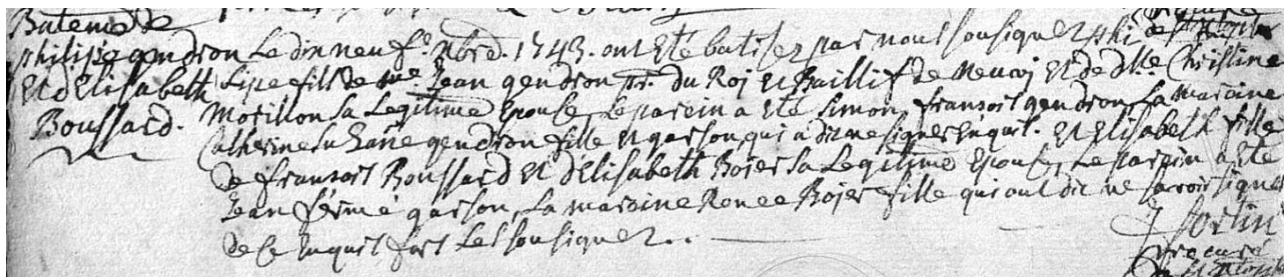 Bateme de
philipe gendron
Et d'Elisabeth
Boussard.
Le dix neuf 9bre. 1743. ont Eté batisez par nous sousignez phi
lipe fils de me Jean gendron pr. du Roj et Baillif de Et de dlle Christine
Morillon sa Legitime Epouse Le parein a Eté Simon fransoit gendron La maraine
Catherine suzane gendron fille Et garson qui a dit ne signer Enquit. Et Elisabeth fille
de fransoit Boussard Et d'Elisabeth Bojer sa Legitime Epouse, Le parein a Eté
Jean fermé garson, La maraine Renee Bojer fille qui ont dit ne savoir signe
de ce Enquit fors Les sousignez..
J fortin